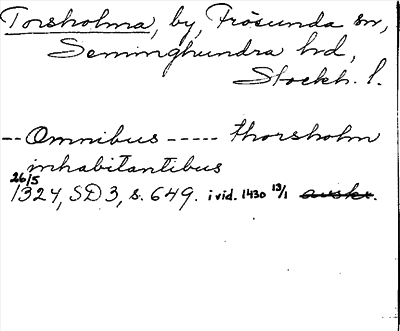 Torsholma, by, Frösunda sn,
Seminghundra hd,
Stockh. l.
-- Omnibus ----- thorsholm
inhabitantibus
26/5
1324, SD 3, s. 649. i vid. 1430 13/1 avskr.